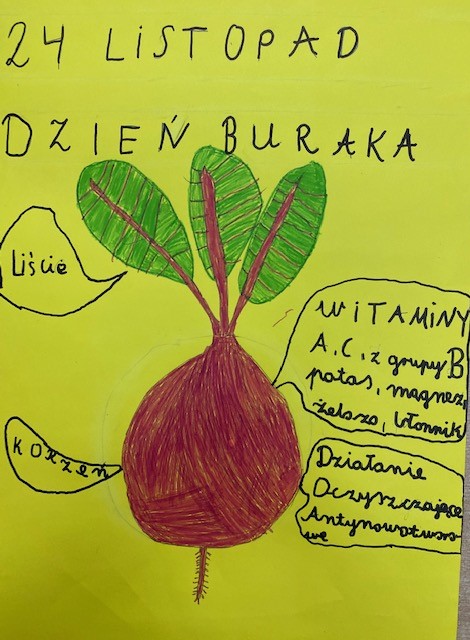 24 LiSTOPAD
DZIEŃ BURAKA
Liście
WiTAMiNY
A, C, z grupy B
potas, magnez,
żelazo, błonnik
KORZEń
Działanie
Oczyszczające
Antynowotworo
we